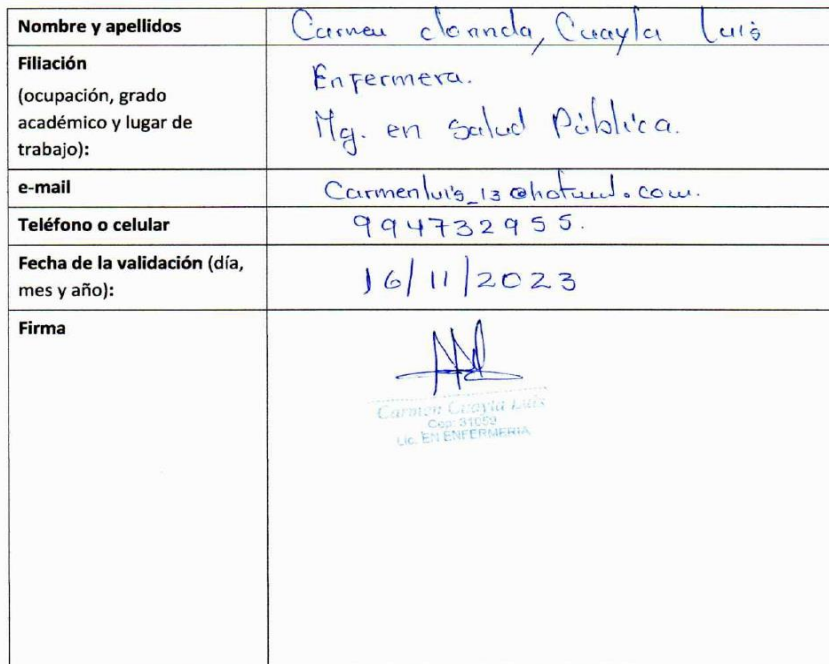 Nombre y apellidos
Carmen clorinda, Cuayla Luis
Filiación
(ocupación, grado
académico y lugar de
trabajo):
Enfermera.
Mg. en Salud Pública.
e-mail
Carmenluis_13@hotmail.com.
Teléfono o celular
994732955.
Fecha de la validación (día,
mes y año):
16/11/2023
Firma
Carmen Cuayla Luis
Cep: 31059
Lic. EN ENFERMERIA